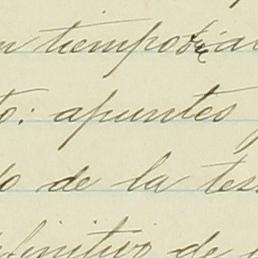 n tiempo
to: apuntes
do de la tes
definitivo de